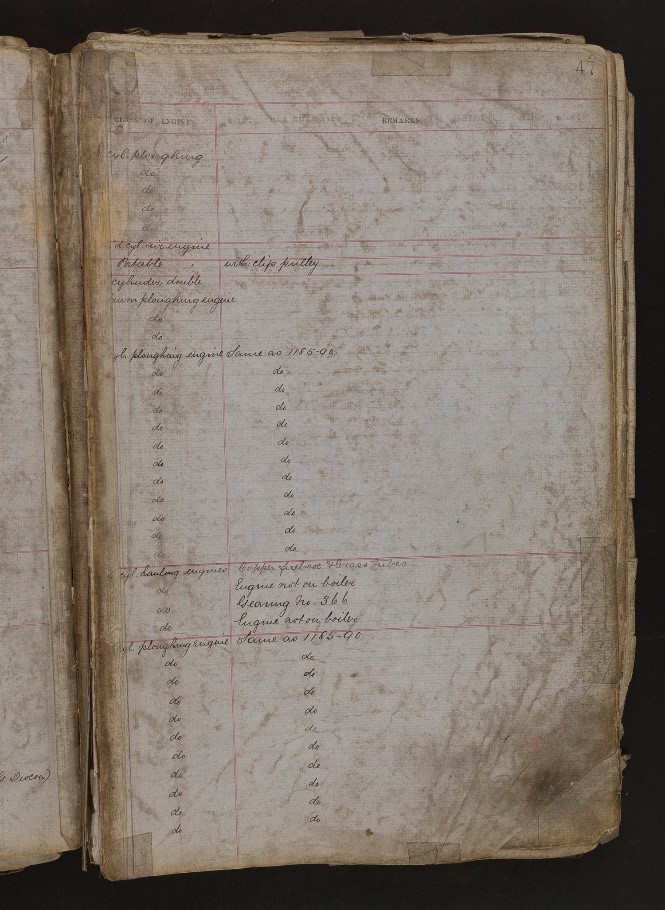 47
CLASS OF ENGINE REMARKS
cyl. ploughing
do
do
do
cyl. engine
Potable with clip pulley
cylinder double
ploughing engine
do
do
yl. ploughing engine Same as 1185-90
do do
do do
do do
do do
do do
do do
do do
do do
do do
do do
do
cyl. hauling engines Copper firebox & brass tubes
do Engine not on boiler
do Gearing No. 366
do Engine not on boiler
yl. ploughing engine Same as 1185-90
do do
do do
do do
do do
do do
do do
do do
do do
do do
do do